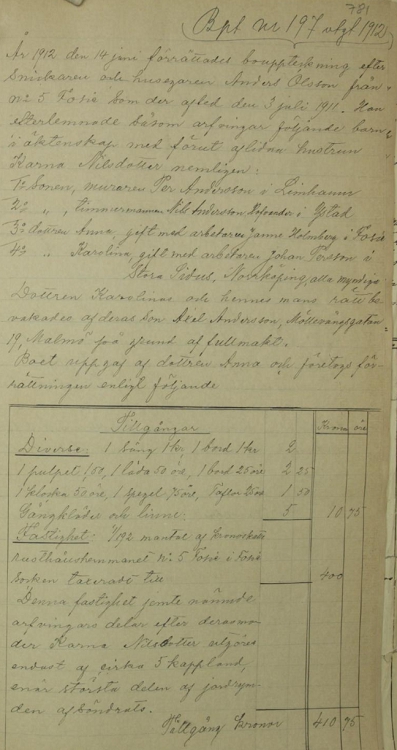 781
Bpt nr 197 afgl 1912
År 1912 den 14 juni förrättades bouppteckning efter
Snickaren och husegaren Anders Olsson från
No 5 Fosie som der afled den 3 juli 1911. Han
efterlemnade såsom arfvingar följande barn
i äktenskap med förut aflidna hustrun
Karna Nilsdotter nemligen:
1o Sonen, muraren Per Andersson i Limhamn
2o " , timmermannen Nils Andersson i Ystad
3o dottren Anna, gift med arbetaren Janne Holmberg i Fosie
4o " Karolina, gift med arbetaren Johan Persson i
Stora Norrköping, alla myndiga.
Dottren Karolinas och hennes mans rätt be-
vakades af deras Son Axel Andersson, Möllevångsgatan
19, Malmö på grund af fullmakt.
Boet uppgafs af dottren Anna och företogs för-
rättningen enligt följande
Tillgångar
Kronor öre
Diverse: 1 säng 1 kr, 1 bord 1 kr 2
1 pulpet 1,50, 1 låda 50 öre, 1 bord 25 öre 2 25
1 klocka 50 öre, 1 spegel 75 öre, Taflor 25 öre 1 50
Gångkläder och linne: 5 10 75
Fastighet: 1/192 mantal af
rusthållshemmanet No 5 Fosie i Fosie
socken taxeradt till 400
Denna fastighet jemte nämnde
arfvingars delar efter deras mo-
der Karna Nilsdotter utgöres
endast af cirka 5 kappland,
enär största delen af jordrym-
den afsöndrats.
Tillgång Kronor 410 75